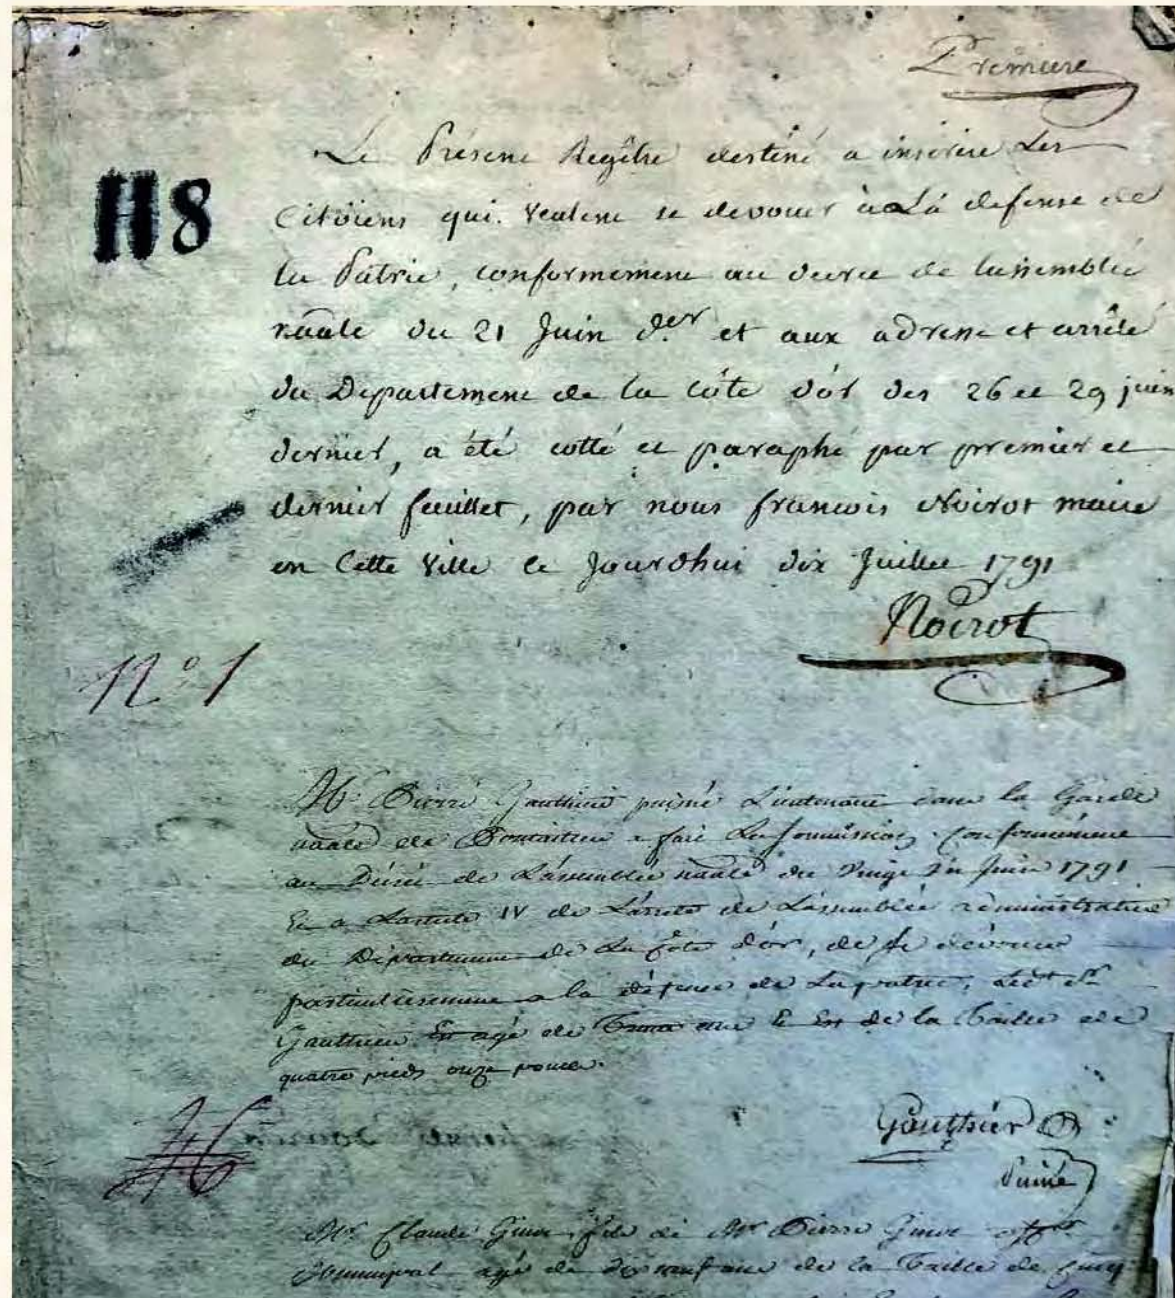 Premiere
Le Présent Regître destiné a inscrire Les
118
Citöiens qui veulent se devouer à La defense de
la Patrie, conformement au decret de lassemblée
naale du 21 Juin der et aux adresse et arrêté
du Departement de la Côte dór des 26 et 29 juin
dernier, a été cotté et paraphé par premier et
dernier feuillet, par nous françois Noirot maire
en Cette Ville ce Jourdhui dix Juillet 1791
Noirot
No 1
Mr Pierre Gauthier puiné Lieutenant dans la Garde
naale de Pontailler a fait La soumission Conformement
au Décret de L'assemblée naale du Vingt un Juin 1791
Et a L'article IV de L'arreté de L'assemblée administrative
du Département de La Côte d'or, de se dévouer
particulièrement a la défense de La patrie, Ledt Sr
Gauthier agé de ans de la Taille de
quatre pieds onze pouces.
Gauthier
Puiné
Mr Claude fils de Mr Pierre
Municipal agé de dix neuf ans de la Taille de Cinq